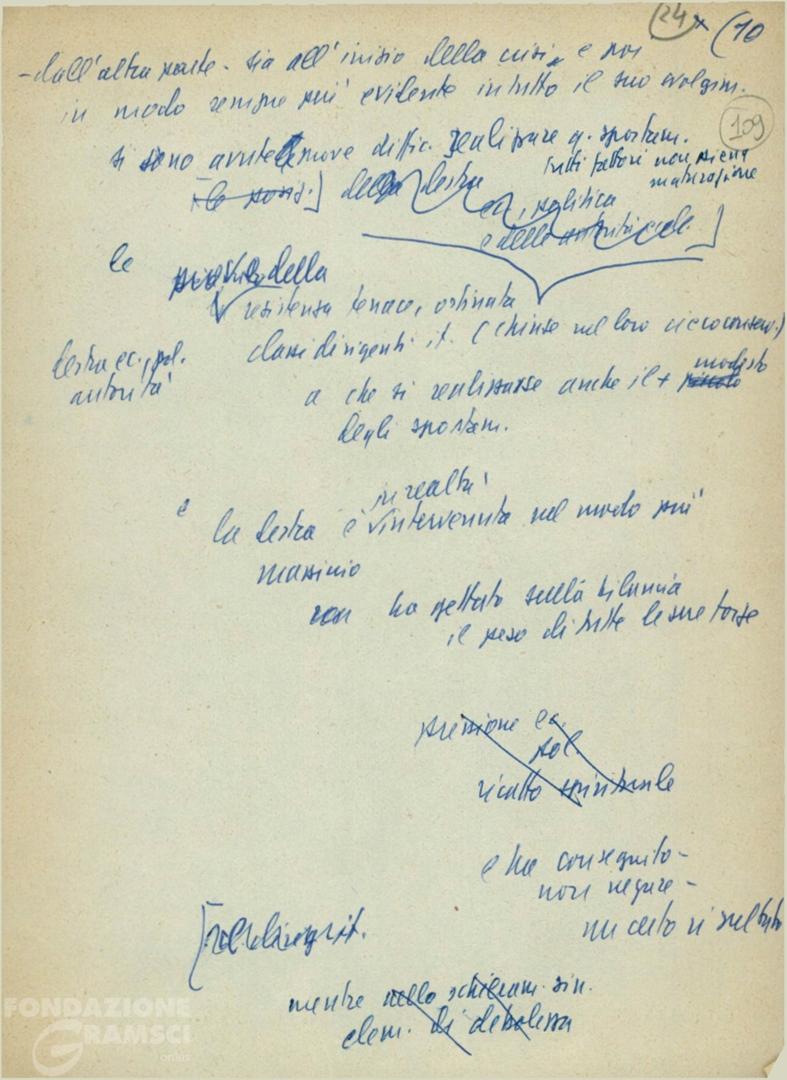 24 x (10
- dall'altra parte - sia all'inizio della crisi e poi
in modo sempre più evidente in tutto il suo svolgim.
109
si sono avute le nuove diffic. realizzare q. spostam.
tutti fattori non piena
maturazione
della destra
ec., politica
e delle autorità eccle.]
le della
resistenza tenace, ostinata
classi dirigenti it. (chiuse nel loro conserv.)
destra ec., pol.
autorità
a che si realizzasse anche il + modesto
degli spostam.
in realtà
e la destra è intervenuta nel modo più
massiccio
non ha gettato sulla bilancia
il peso di tutte le sue forze
pressione ec.
pol.
ricatto spirituale
e ha conseguito -
non negare -
un certo risultato
[
mentre nello schieram. sin.
elem. di debolezza
FONDAZIONE
GRAMSCI
onlus